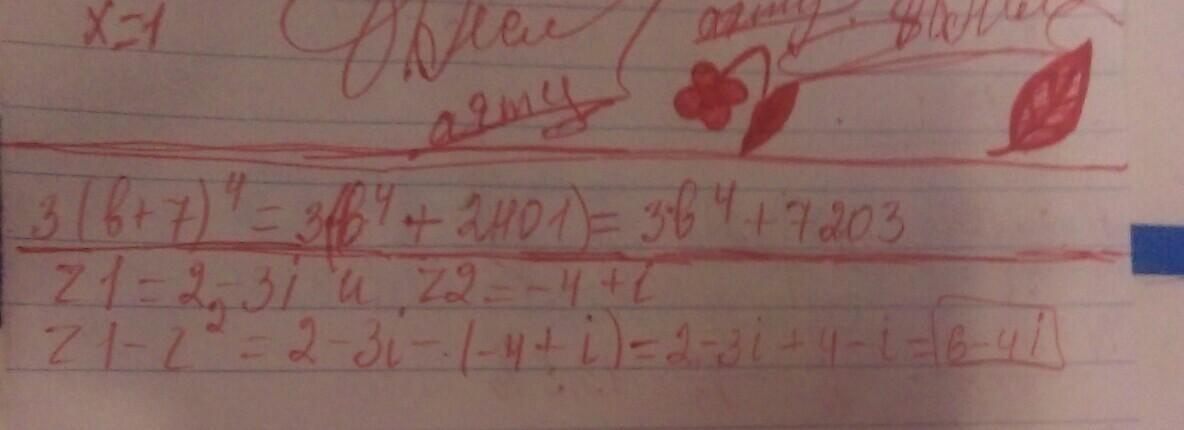 x=1
3(b+7)⁴=3(b⁴+2401)=3b⁴+7203
z1=2-3i и z2=-4+i
z1-z²=2-3i-(-4+i)=2-3i+4-i=6-4i